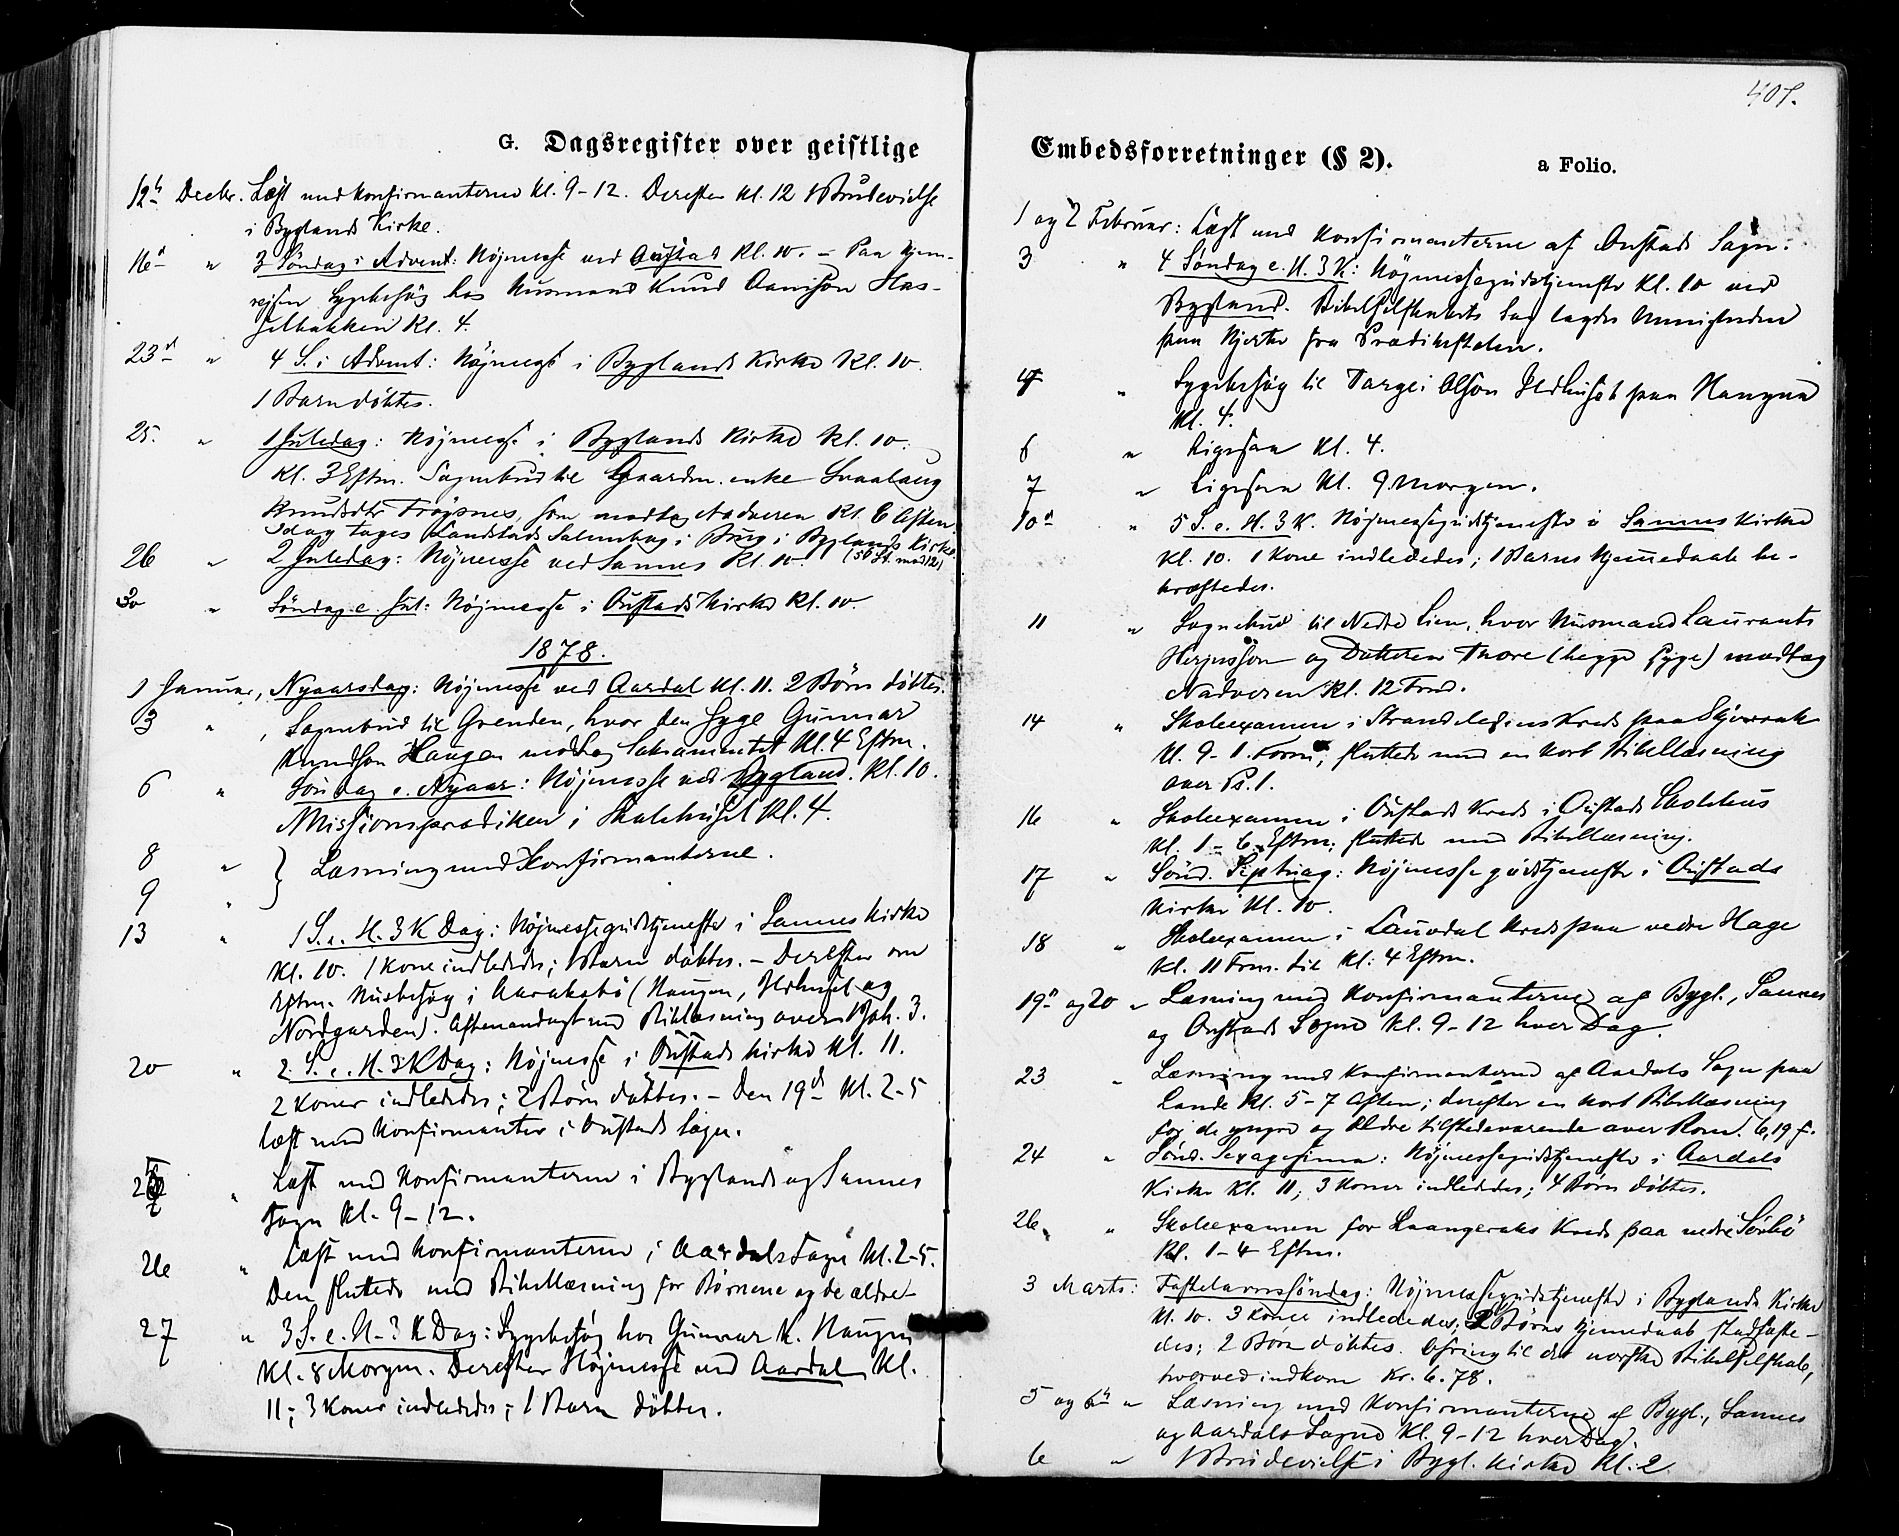 G. Dagsregister over geistlige
12te Decbr. Læst med Konfirmanterne Kl. 9-12. Derefter Kl. 12 1 Brudevielse
i Byglands Kirke.
16de " 3 Söndag i Advent: Höjmesse ved Austad Kl. 10. – Paa Hjem-
rejsen Sygebesög hos Husmand Knud Aanisön Has-
selbakken Kl. 4.
23de " 4 S. i Advent: Höjmesse i Byglands Kirke Kl. 10.
1 Barn döbtes.
25. " 1 Juledag: Höjmesse i Byglands Kirke Kl. 10.
Kl. 3 Eftm. Sognebud til Gaardm. enke Svaalaug
Knudsdtr Fröysnes, som modtog Nadveren Kl. 6 Aften.
Idag toges Landstads Salmebog i Brug i Byglands Kirke.
26 " 2 Juledag: Höjmesse ved Sannes Kl. 10.
30 " Söndag e. Jul: Höjmesse i Oustads Kirke Kl. 10.
1878.
1 Januar, Nyaarsdag: Höjmesse ved Aardal Kl. 11. 2 Börn döbtes.
3 " , Sognebud til Grenden, hvor den syge Gunnar
Knudson Haugen modtog Sakramentet Kl. 4 Eftm.
6 " Söndag e. Nyaar: Höjmesse ved Bygland. Kl. 10.
Missionsprædiken i Skolehuset Kl. 4.
8 " } Læsning med Konfirmanterne.
9 "
13 " 1 S. e. H. 3 K Dag: Höjmessegudstjeneste i Sannes Kirke
Kl. 10. 1 Kone indlededes; 1 Barn döbtes. – Derefter om
Eftm. Husbesög i Aaraksbö (Haugen, Ildhuset og
Nordgarden). Aftenandagt med Bibellæsning over 1 Joh. 3.
20 " 2. S. e. H. 3 K Dag: Höjmesse i Oustads Kirke Kl. 11.
2 Koner indlededes; 2 Börn döbtes. – Den 19de Kl. 2-5
læst med Konfirmanter i Oustads Sogn.
" Læst med Konfirmanterne i Byglands og Sannes
Sogn Kl. 9-12.
26 " Læst med Konfirmanterne i Aardals Sogn Kl. 2-5.
Den sluttede med Bibellæsning for Börnene og de ældre
27 " 3 S. e. H. 3 K Dag: Sygebesög hos Gunnar K. Haugen
Kl. 8 Morgen. Derefter Höjmesse ved Aardal Kl.
11; 3 Koner indlededes; 1 Barn döbtes.
Embedsforretninger (§ 2). a Folio.
401.
1 og 2 Februar: Læst med Konfirmanterne af Oustads Sogn.
3 " 4 Söndag e. H. 3 K: Höjmessegudstjeneste Kl. 10 ved
Bygland. Bibelselskabets Sag lagdes Menigheden
paa Hjerte fra Prædikestolen.
4 " Sygebesög til Targei Olson Ildhuset paa
Kl. 4.
6 " Ligesaa Kl. 4.
7 " Ligesaa Kl. 9 Morgen.
10de " 5 S. e. H. 3 K. Höjmessegudstjeneste i Sannes Kirke
Kl. 10. 1 Kone indlededes; 1 Barns Hjemmedaab be-
kræftedes.
11 " Sognebud til Nedre Lien, hvor Husmand Laurants
Herjusson og Datteren Thore (begge syge) modtog
Nadveren Kl. 12 Fmd.
14 " Skoleexamen i Strandelejens Kreds paa Skjevrak
Kl. 9-1 Form; sluttede med en kort Bibellæsning
over Ps. 1.
16 " Skoleexamen i Oustads Kreds i Oustads Skolehus
Kl. 1-6 Eftm; sluttede med Bibellæsning.
17 " Sönd. Septuag: Höjmessegudstjeneste i Oustads
Kirke Kl. 10.
18 " Skoleexamen i Lauvdal Kreds paa nedre Hage
Kl. 11 Frm. til Kl. 4 Eftm.
19de og 20 " Læsning med Konfirmanterne af Bygl., Sannes
og Oustads Sogne Kl. 9-12 hver Dag.
23 " Læsning med Konfirmanterne af Aardals Sogn paa
Lande Kl. 5-7 Aften; derefter en kort Bibellæsning
for de yngre og ældre tilstedeværende over Rom. 6,19 f.
24 " Sönd. Sexagesima: Höjmessegudstjeneste i Aardals
Kirke Kl. 11; 3 Koner indlededes; 4 Börn döbtes.
26 " Skoleexamen for Kreds paa nedre Sörbö
Kl. 1-4 Eftm.
3 Marts: Fastelavnssöndag: Höjmessegudstjeneste i Byglands Kirke
Kl. 10. 3 Koner indlededes; 2 Börns Hjemmedaab stadfæste-
des; 2 Börn döbtes. Ofring til det norske Bibelselskab,
hvorved indkom Kr. 6.78.
5 og 6te " Læsning med Konfirmanterne af Bygl., Sannes
og Aardals Sogne Kl. 9-12 hver Dag.
6 " 1 Brudevielse i Bygl. Kirke Kl. 2.